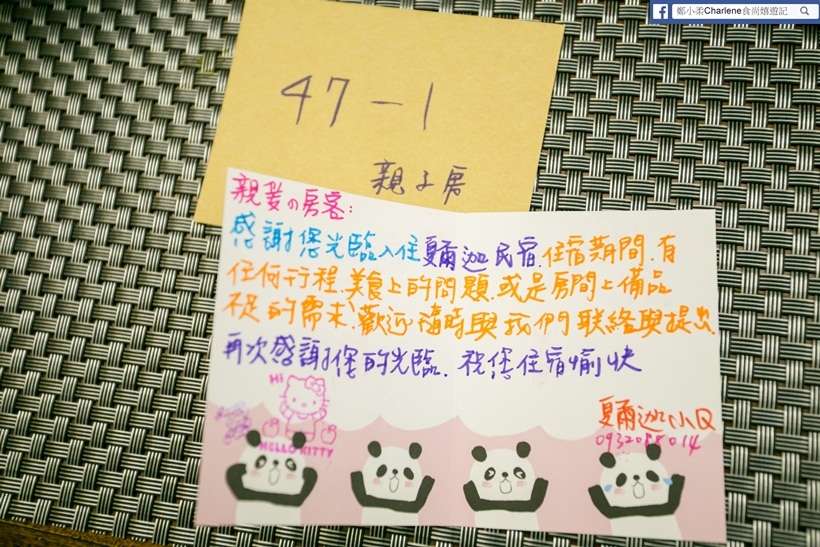 鄭小柔Charlene食尚嬉遊記
47-1
親子房
親愛の房客:
感謝您光臨入住夏爾迦民宿.住宿期間.有
任何行程.美食上的問題.或是房間上備品
不足的需求.歡迎隨時與我們聯絡與提出.
再次感謝您的光臨.祝您住宿愉快
HI
HELLO KITTY
夏爾迦小Q
0932088014